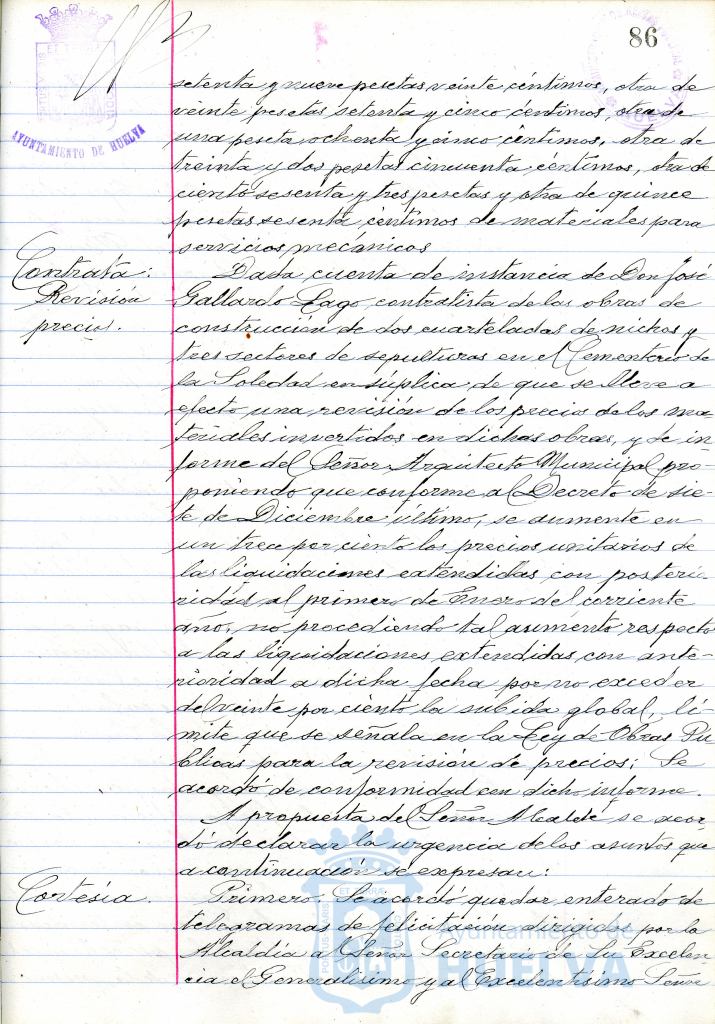 86
AYUNTAMIENTO DE HUELVA
setenta y nueve pesetas veinte céntimos, otra de
veinte pesetas setenta y cinco céntimos, otra de
una peseta ochenta y cinco céntimos, otra de
treinta y dos pesetas cincuenta céntimos, otra de
ciento sesenta y tres pesetas y otra de quince
pesetas sesenta céntimos de materiales para
servicios mecánicos
Contrata:
Revisión
precios.
Dada cuenta de instancia de Don José
Gallardo Lago, contratista de las obras de
construcción de dos cuarteladas de nichos y
tres sectores de sepulturas en el Cementerio de
la Soledad en súplica de que se lleve a
efecto una revisión de los precios de los ma-
teriales invertidos en dichas obras, y de in-
forme del Señor Arquitecto Municipal pro-
poniendo que conforme al Decreto de sie-
te de Diciembre último, se aumente en
un trece por ciento los precios unitarios de
las liquidaciones extendidas con posterio-
ridad al primero de Enero del corriente
año, no procediendo tal aumento respecto
a las liquidaciones extendidas con ante-
rioridad a dicha fecha por no exceder
del veinte por ciento la subida global, lí-
mite que se señala en la Ley de Obras Pú-
blicas para la revisión de precios; Se
acordó de conformidad con dicho informe.
A propuesta del Señor Alcalde se acor-
dó declarar la urgencia de los asuntos que
a continuación se expresan:
Cortesía.
Primero. Se acordó quedar enterado de
telegramas de felicitación dirigidos por la
Alcaldía al Señor Secretario de Su Excelen-
cia el Generalísimo y al Excelentísimo Señor
Ayuntamiento de
HUELVA